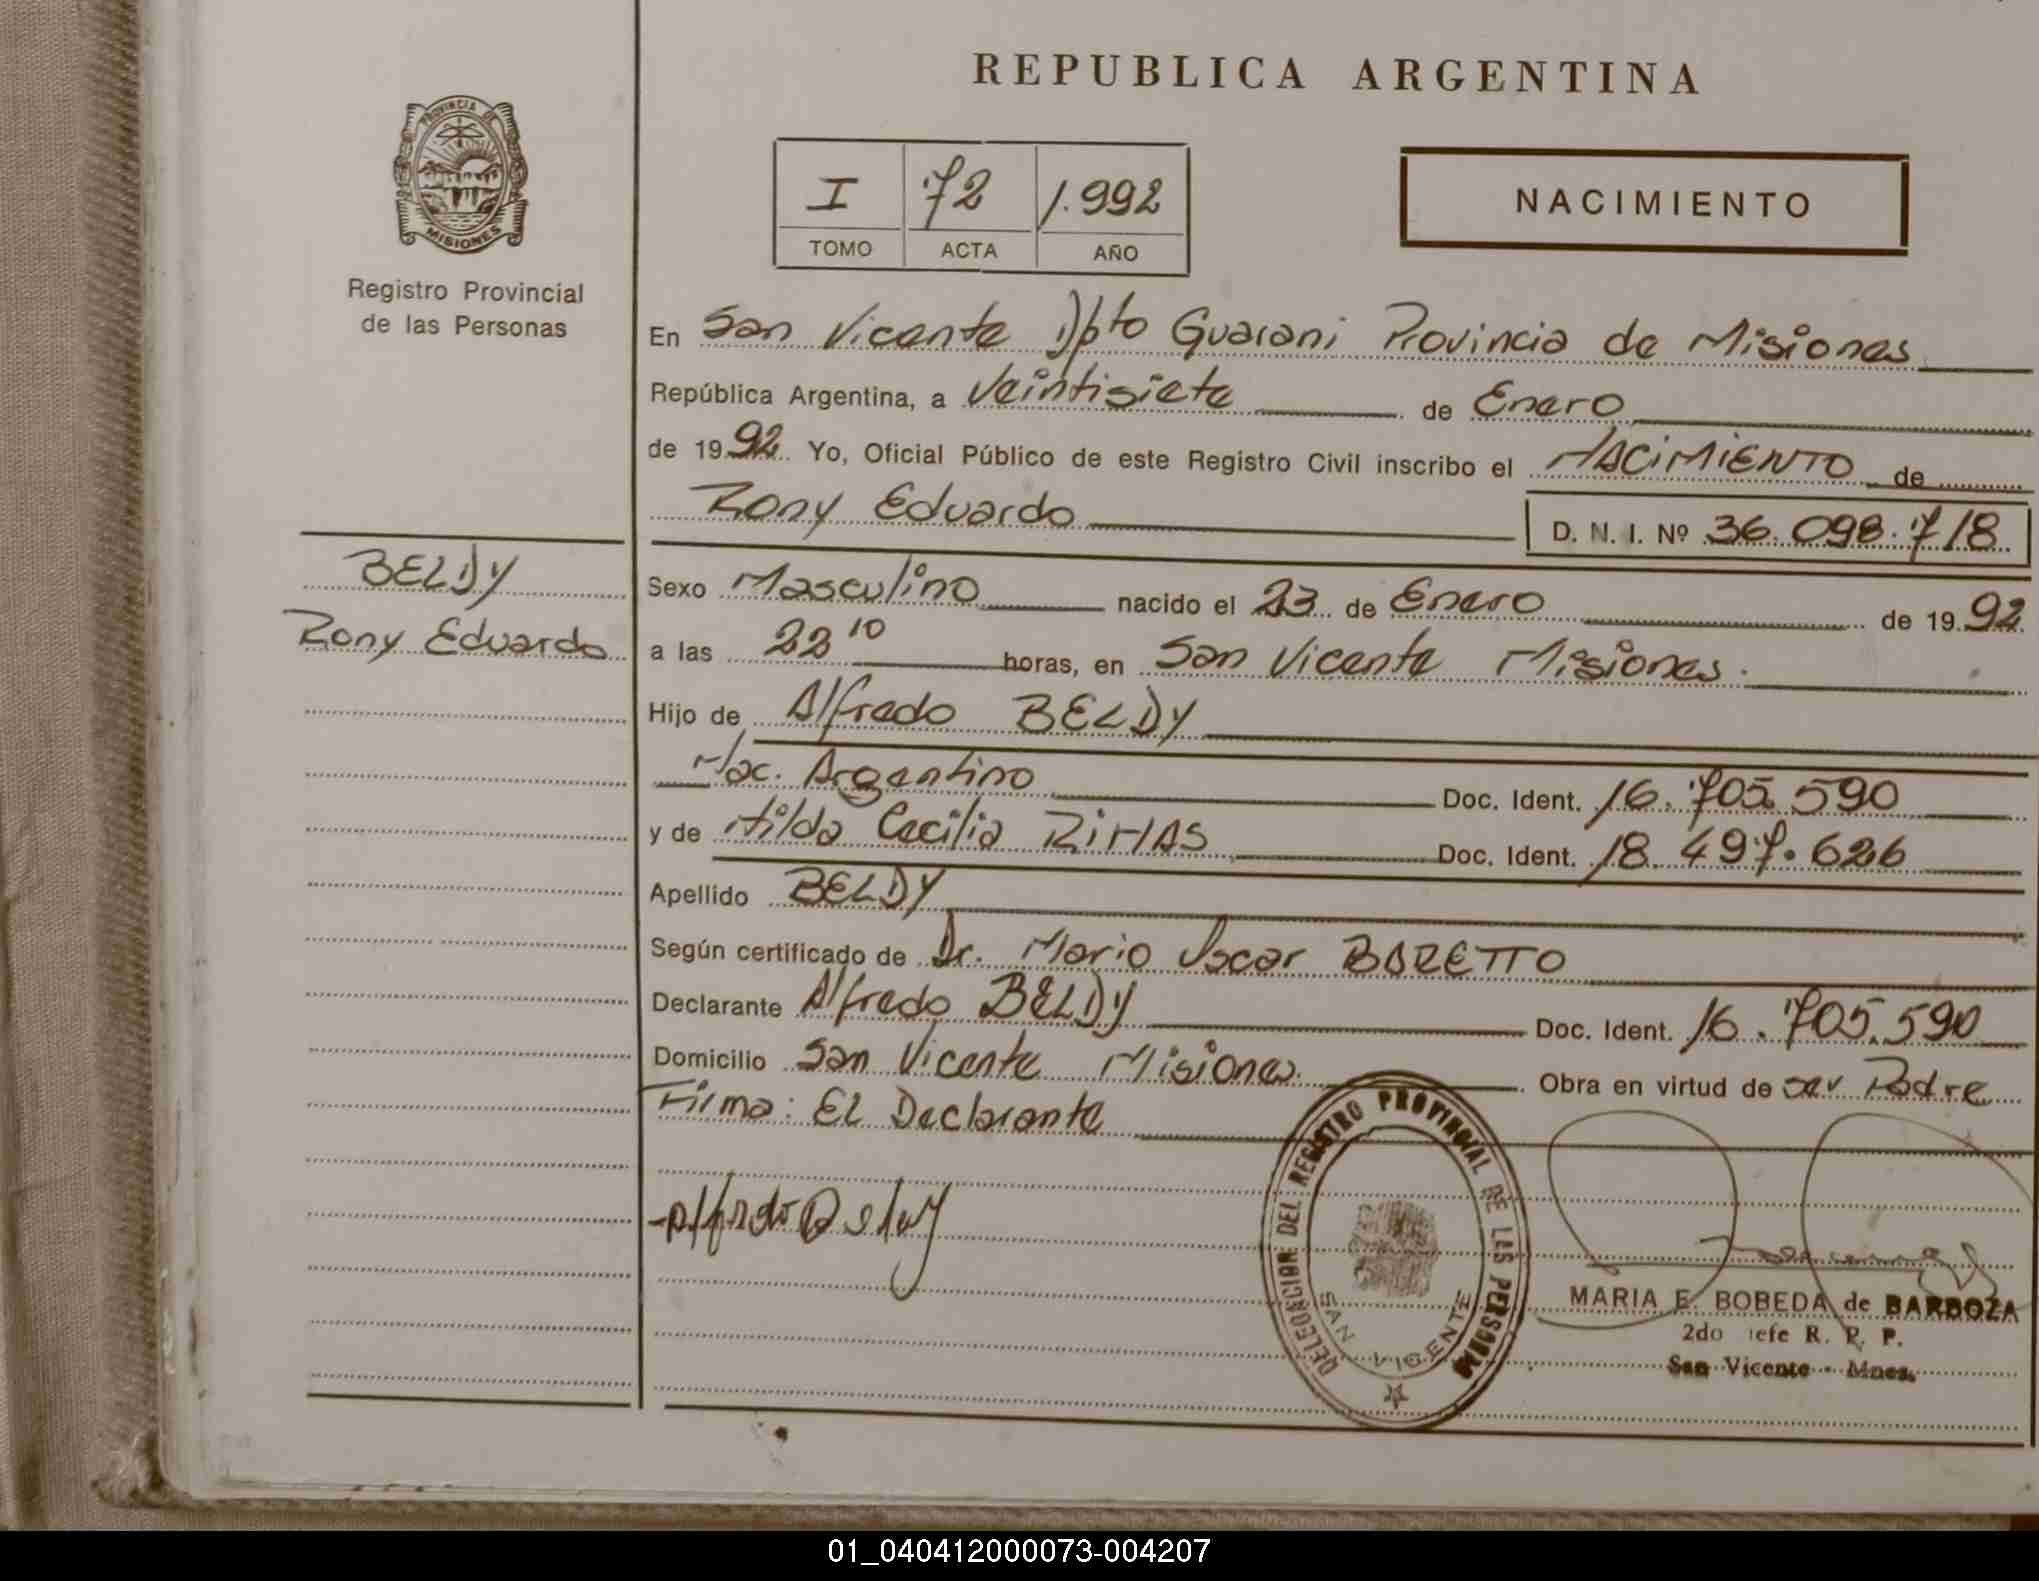 REPUBLICA ARGENTINA
PROVINCIA DE
MISIONES
Registro Provincial
de las Personas
I 72 1.992
TOMO ACTA AÑO
NACIMIENTO
En San Vicente Dpto Guarani Provincia de Misiones
República Argentina, a Veintisiete de Enero
de 1992 Yo, Oficial Público de este Registro Civil inscribo el NACIMIENTO de
Rony Eduardo D. N. I. Nº 36.098.718
BELDY
Rony Eduardo
Sexo Masculino nacido el 23 de Enero de 1992
a las 22 10 horas, en San Vicente Misiones.
Hijo de Alfredo BELDY
Nac. Argentino Doc. Ident. 16.705.590
y de Hilda Cecilia Doc. Ident. 18.497.626
Apellido BELDY
Según certificado de Dr. Mario Oscar BARETTO
Declarante Alfredo BELDY Doc. Ident. 16.705.590
Domicilio San Vicente Misiones. Obra en virtud de ser Padre
Firma: El Declarante
Alfredo Beldy
DELEGACION DEL REGISTRO PROVINCIAL DE LAS PERSONAS
SAN VICENTE
MARIA E. BOBEDA de BARBOZA
2do Jefe R. P. P.
San Vicente - Mnes.
01_040412000073-004207